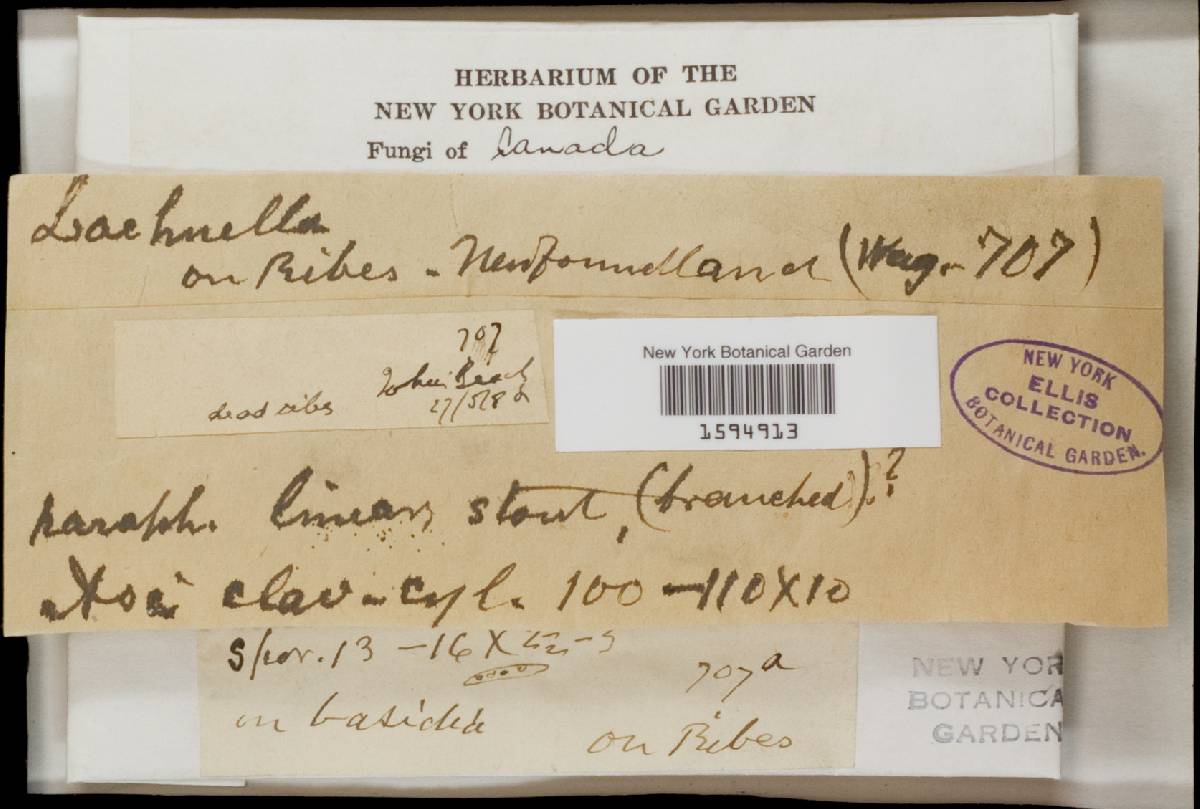 HERBARIUM OF THE
NEW YORK BOTANICAL GARDEN
Fungi of Canada
Lachnella
on Ribes - Newfoundland (Wag. 707)
707
dead ribes
27/5/8
New York Botanical Garden
1594913
NEW YORK
ELLIS
COLLECTION
BOTANICAL GARDEN.
paraph. linear, stout, (branched)?
Asci clav-cyl. 100-110X10
Spor. 13-16 X
707a
on basidia
on Ribes
NEW YOR
BOTANICA
GARDEN